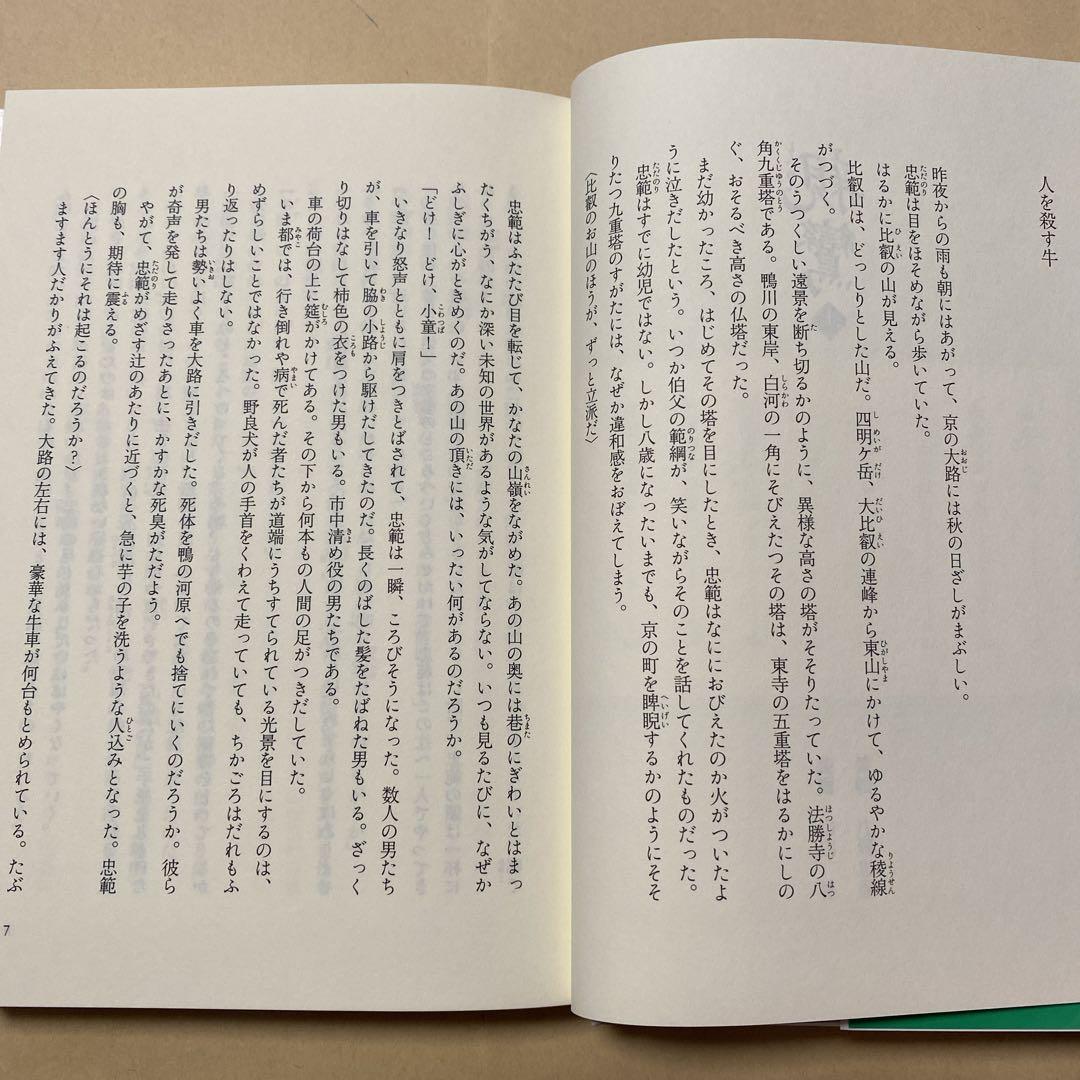 人を殺す牛
昨夜からの雨も朝にはあがって、京の大路には秋の日ざしがまぶしい。
忠範は目をほそめながら歩いていた。
はるかに比叡の山が見える。
比叡山は、どっしりとした山だ。四明ヶ岳、大比叡の連峰から東山にかけて、ゆるやかな稜線
がつづく。
そのうつくしい遠景を断ち切るかのように、異様な高さの塔がそそりたっていた。法勝寺の八
角九重塔である。鴨川の東岸、白河の一角にそびえたつその塔は、東寺の五重塔をはるかにしの
ぐ、おそるべき高さの仏塔だった。
まだ幼かったころ、はじめてその塔を目にしたとき、忠範はなににおびえたのか火がついたよ
うに泣きだしたという。いつか伯父の範綱が、笑いながらそのことを話してくれたものだった。
忠範はすでに幼児ではない。しかし八歳になったいまでも、京の町を睥睨するかのようにそそ
りたつ九重塔のすがたには、なぜか違和感をおぼえてしまう。
〈比叡のお山のほうが、ずっと立派だ〉
忠範はふたたび目を転じて、かなたの山嶺をながめた。あの山の奥には巷のにぎわいとはまっ
たくちがう、なにか深い未知の世界があるような気がしてならない。いつも見るたびに、なぜか
ふしぎに心がときめくのだ。あの山の頂きには、いったい何があるのだろうか。
「どけ！　どけ、小童！」
いきなり怒声とともに肩をつきとばされて、忠範は一瞬、ころびそうになった。数人の男たち
が、車を引いて脇の小路から駆けだしてきたのだ。長くのばした髪をたばねた男もいる。ざっく
り切りはなして柿色の衣をつけた男もいる。市中清め役の男たちである。
車の荷台の上に筵がかけてある。その下から何本もの人間の足がつきだしていた。
いま都では、行き倒れや病で死んだ者たちが道端にうちすてられている光景を目にするのは、
めずらしいことではなかった。野良犬が人の手首をくわえて走っていても、ちかごろはだれもふ
り返ったりはしない。
男たちは勢いよく車を大路に引きだした。死体を鴨の河原へでも捨てにいくのだろうか。彼ら
が奇声を発して走りさったあとに、かすかな死臭がただよう。
やがて、忠範がめざす辻のあたりに近づくと、急に芋の子を洗うような人込みとなった。忠範
の胸も、期待に震える。
〈ほんとうにそれは起こるのだろうか？〉
ますます人だかりがふえてきた。大路の左右には、豪華な牛車が何台もとめられている。たぶ
7